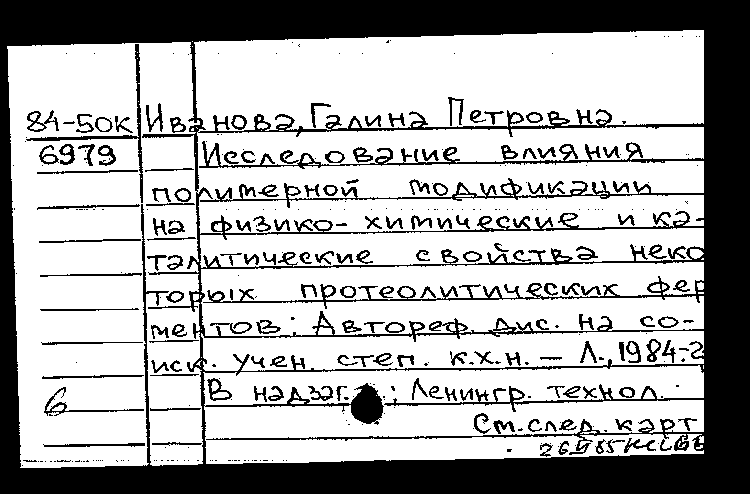 84-50К Иванова, Галина Петровна.
6979 Исследование влияния
полимерной модификации
на физико-химические и ка-
талитические свойства неко
торых протеолитических фер
ментов: Автореф. дис. на со-
иск. учен. степ. к.х.н. — Л., 1984.-2
6 В надзаг.: Ленингр. технол.
См. след. карт